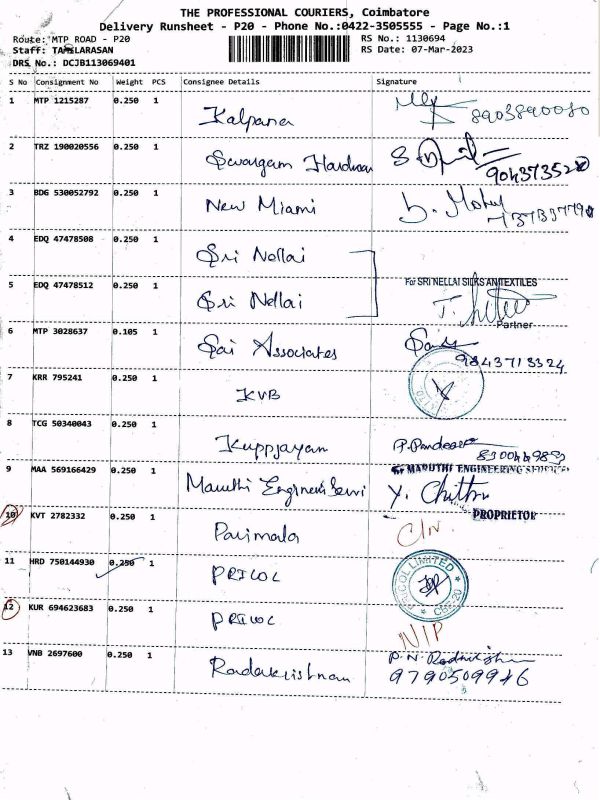 THE PROFESSIONAL COURIERS, Coimbatore
Delivery Runsheet - P20 - Phone No.:0422-3505555 - Page No.:1
Route: MTP ROAD - P20 RS No.: 1130694
Staff: TAMILARASAN RS Date: 07-Mar-2023
DRS No.: DCJB113069401
S No Consignment No Weight PCS Consignee Details Signature
1 MTP 1215287 0.250 1 Kalpana 8903890080
2 TRZ 190020556 0.250 1 Swargam Hardware
3 BDG 530052792 0.250 1 New Miami
4 EDQ 47478508 0.250 1 Sri Nellai
5 EDQ 47478512 0.250 1 Sri Nellai For SRI NELLAI SILKS AN TEXTILES
Partner
6 MTP 3028637 0.105 1 Sai Associates 9843713324
7 KRR 795241 0.250 1 KVB
8 TCG 50340043 0.250 1 Kuppjayam
9 MAA 569166429 0.250 1 Maruthi Engineer Servi For MARUTHI ENGINEERING SERVICE
Y. Chithu
PROPRIETOR
10 KVT 2782332 0.250 1 Parimala C/N
11 HRD 750144930 0.250 1 PRICOL PRICOL LIMITED CBE-20
12 KUR 694623683 0.250 1 PRICOL N/P
13 VNB 2697600 0.250 1 Radakrishnan
9790509946